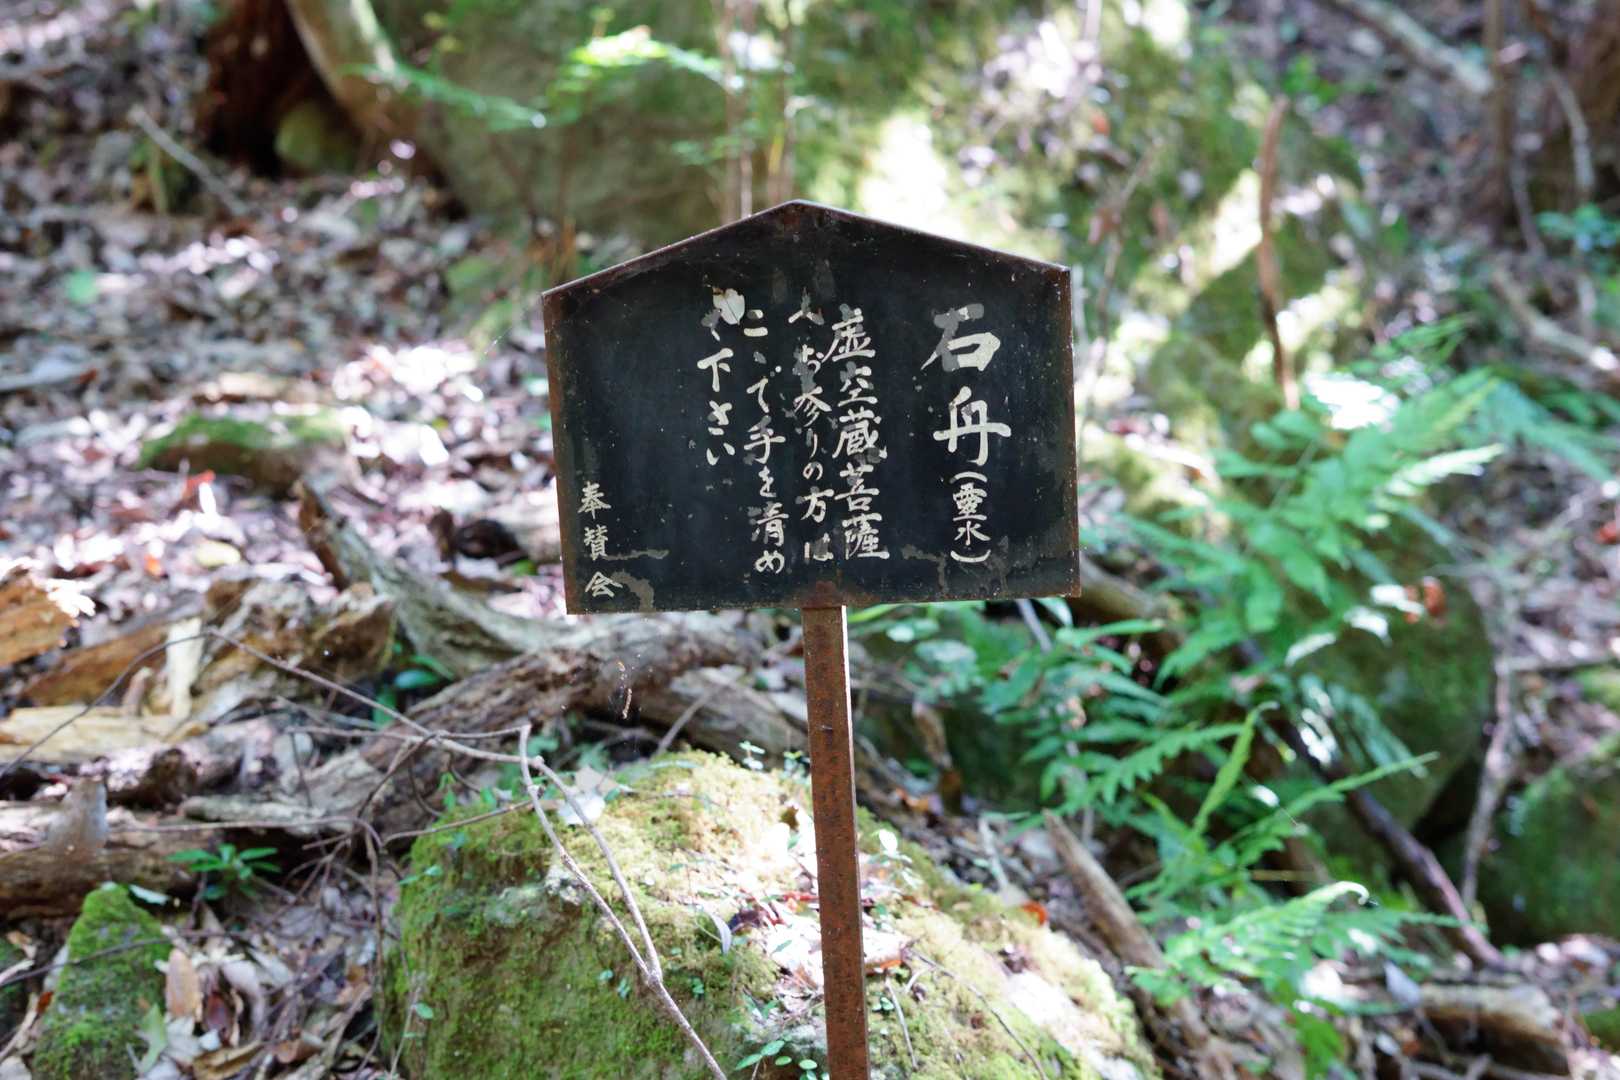 石舟(靈水)
虚空蔵菩薩
へお参りの方は
こゝで手を清め
て下さい
奉賛会